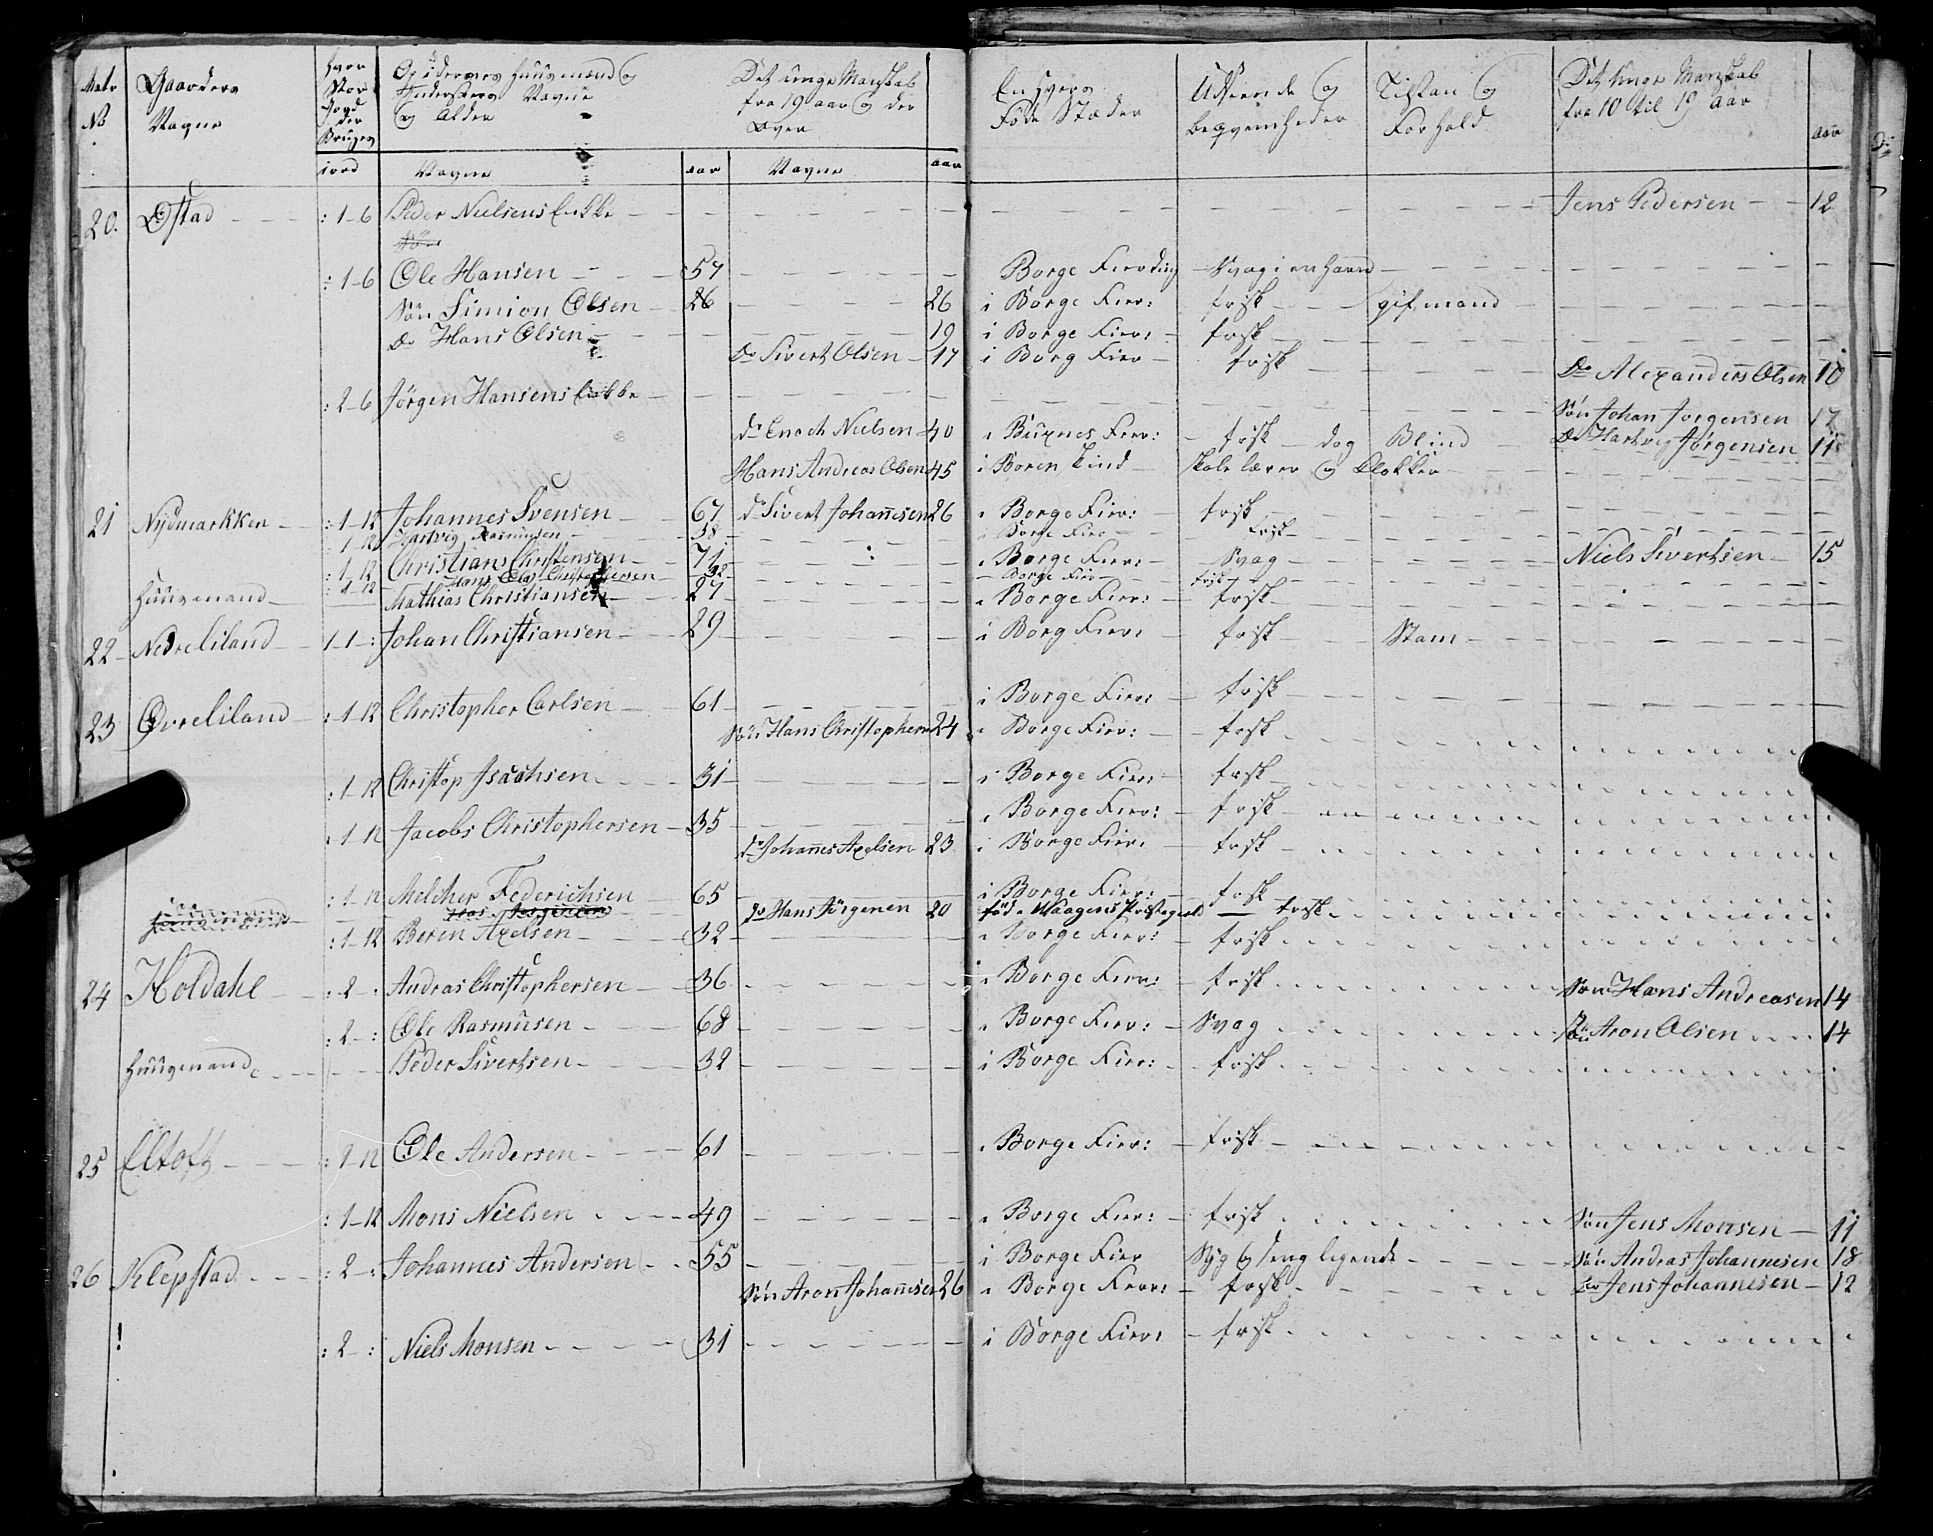 Matr No Gaardens Navne Hvor Stor Jord der Bruges Opsidernes Huusmænd og Indersters Navne og Alder Det unge Manskab fra 19 aar og der Over Enhvers Føde Stæder Udseende og beqvemheder Tilstan og Forhold Det Unge Manskab fra 10 til 19 aar aar
iord Navne aar Navne aar
20. Østad : 1-6 Peder Nielsens Enkke Jens Pedersen 12
: 1-6 Ole Hansen 57 Borge Fierding Svag i en haand
Søn Simion Olsen 26 26 i Borge Fier: frisk gift mand
Do Hans Olsen 19 i Borge Fier: frisk
Do Sivert Olsen 17 i Borg Fier frisk Do Alexanders Olsen 10
: 2-6 Jörgen Hansens Enkke Søn Johan Jørgensen 17
do Enoch Nielsen 40 i Buxnes Fier: frisk dog Blind Do Hartvig Jørgensen 11
Hans Andreas Olsen 45 i Boren kind Skolelærer og Klokker
21 Nÿdmarkken : 1-12 Johannes Svensen 67 do Sivert Johannesen 26 i Borge Fier: frisk
: 1-12 Hartvig Rasmusen 38 i Borge Fier frisk
: 1-12 Christians Christensen 71 i Borge Fier: Svag Niels Sivertsen 15
: 1-12 Hans Olai Christophersen 32 Borge Fier frisk
Huusmand Mathias Christiansen 27 i Borge Fier: frisk
22 Nedreliland 1-1-: Johan Christiansen 29 i Borg Fier: frisk Stam
23 Øvreliland : 1-12 Christopher Carlsen 61 i Borge Fier: frisk
Søn Hans Christophern 24 i Borge Fier: frisk
: 1-12 Christop Isachsen 31 i Borge Fier: frisk
: 1-12 Jacobs Christophersen 35 i Borge Fier: frisk
do Johannes Axelsen 23 i Borge Fier: frisk
: 1-12 Melcher Federichsen 65 i Borge Fier: frisk
do Hans Jörgenen 20 fød i Waagens Præstegield frisk
: 1-12 Beren Axelsen 32 i Borge Fier: frisk
24 Holdahl : 2-: Andras Christophersen 36 i Borge Fier: frisk Søn Hans Andreasen 14
: 2-: Ole Rasmusen 68 i Borge Fier: Svag Søn Aron Olsen 14
Huusmand Peder Sivertsen 32 i Borge Fier: frisk
25 Eltoft : 1-12 Ole Andersen 61 i Borge Fier: frisk
: 1-12 Mons Nielsen 49 i Borge Fier: frisk Søn Jens Monsen 11
26 Klepstad : 2-: Johannes Andersen 55 i Borge Fier Syg og seng ligende Søn Andras Johannesen 18
Søn Aron Johannesen 26 i Borge Fier: frisk Do Jens Johannesen 12
: 2-: Niels Monsen 31 i Borge Fier: frisk